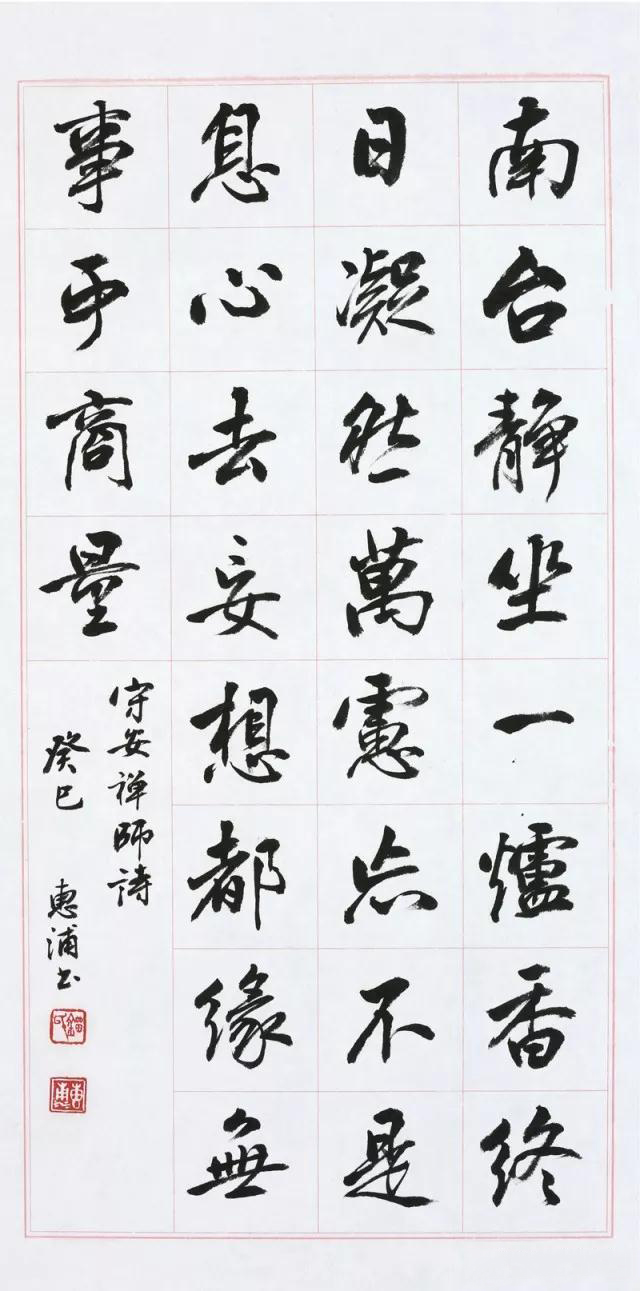 南台靜坐一爐香終
日凝然萬慮忘不是
息心去妄想都緣無
事可商量
守安禅師詩
癸巳 惠浦书